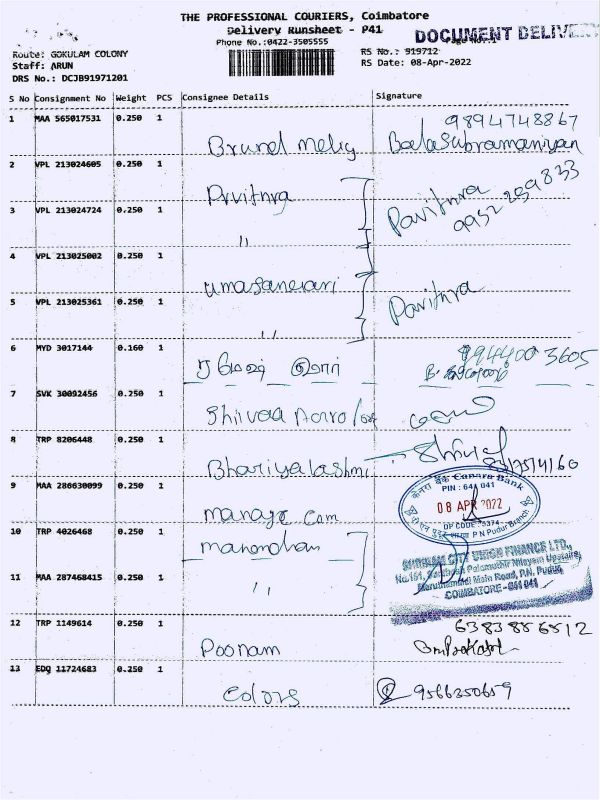 THE PROFESSIONAL COURIERS, Coimbatore
Delivery Runsheet - P41
Phone No.:0422-3505555
DOCUMENT DELIVERY
Route: GOKULAM COLONY
Staff: ARUN
DRS No.: DCJB91971201
RS No.: 919712
RS Date: 08-Apr-2022
S No Consignment No Weight PCS Consignee Details Signature
1 MAA 565017531 0.250 1
9894748867
Balasubramaniyan
2 VPL 213024605 0.250 1
Pavithra
9952 259833
3 VPL 213024724 0.250 1
"
4 VPL 213025002 0.250 1
5 VPL 213025361 0.250 1
Pavithra
"
6 MYD 3017144 0.160 1
ரமேஷ் குமார்
94400 3605
7 SVK 30092456 0.250 1
Shivaa
8 TRP 8206448 0.250 1
9 MAA 286630099 0.250 1
Canara Bank
PIN : 641 041
08 APR 2022
DP CODE : 5374
P N Pudur Branch
10 TRP 4026468 0.250 1
manomohan
11 MAA 287468415 0.250 1
"
SHRIRAM CITY UNION FINANCE LTD.,
Maruthamalai Main Road, P.N. Pudur,
COIMBATORE - 641 041
12 TRP 1149614 0.250 1
Poonam
6383856512
13 EDQ 11724683 0.250 1
Colors
9566350659